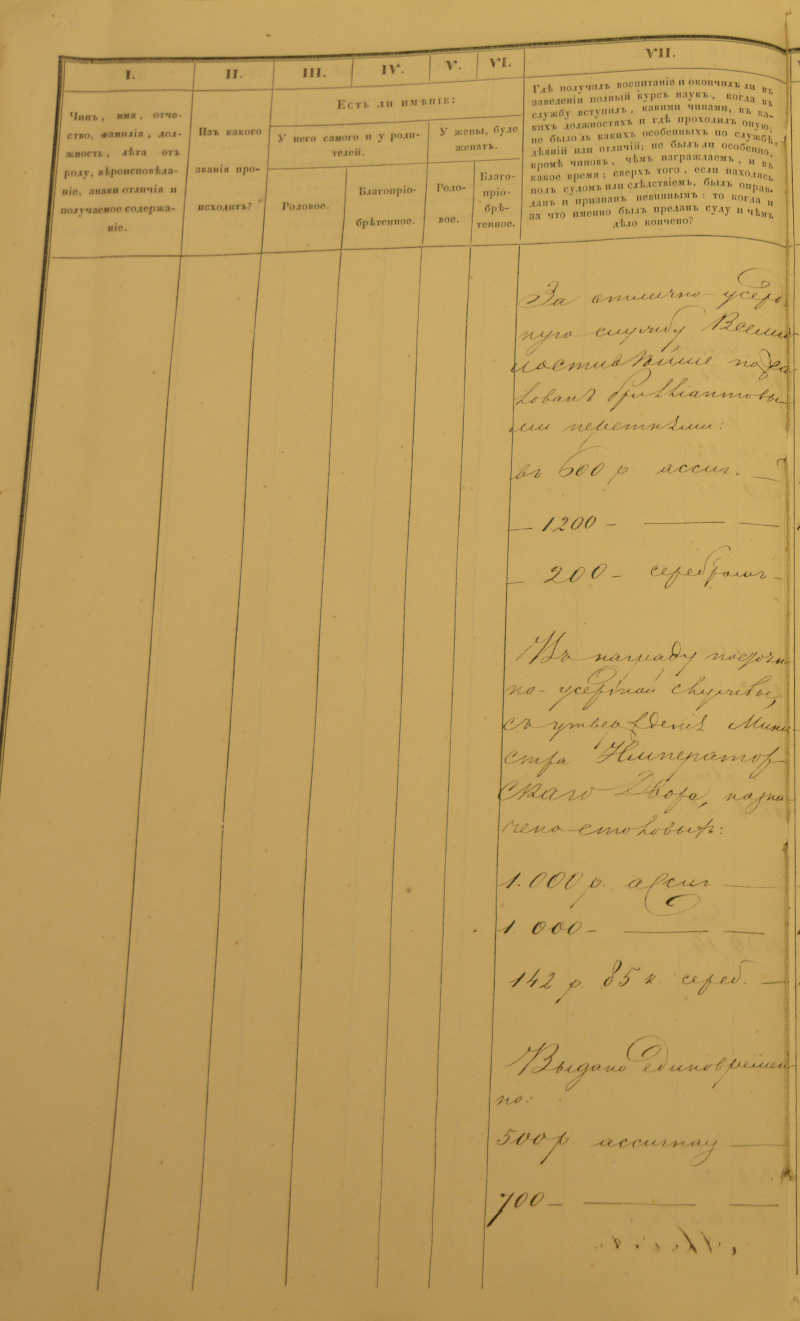 I.
II.
III.
IV.
V.
VI.
VII.
Чинъ, имя, отче-
ство, фамилія, дол-
жность, лѣта отъ
роду, вѣроисповѣда-
ніе, знаки отличія и
получаемое содержа-
ніе.
Изъ какого
званія про-
исходитъ?
Есть ли имѣніе:
У него самого и у роди-
телей.
У жены, буде
женатъ.
Родовое.
Благопріо-
брѣтенное.
Родо-
вое.
Благо-
пріо-
брѣ-
тенное.
Гдѣ получилъ воспитаніе и окончилъ ли въ
заведеніи полный курсъ наукъ, когда въ
службу вступилъ, какими чинами, въ ка-
кихъ должностяхъ и гдѣ проходилъ оную,
не было ль какихъ особенныхъ по службѣ
дѣяній или отличій; не былъ ли особенно,
кромѣ чиновъ, чѣмъ награждаемъ, и въ
какое время; сверхъ того, если находясь
подъ судомъ или слѣдствіемъ, былъ оправ-
данъ и признанъ невиннымъ: то когда и
за что именно былъ преданъ суду и чѣмъ
дѣло кончено?
За отлично усерд
ную службу Всеми
лостивѣйше пожа
лованъ брилліантовы
ми перстнями:
въ 600 р ассиг.
— 1200 —
— 200 — серебромъ —
Въ награду постоян
но - усердной службы,
съ утвержденія Мини
стра Император
скаго Двора, назна
чено столовыхъ:
1.000 р. ассиг
1 000 —
142 р. 85 к серед.
Выдано единовремен
но:
500 р ассигнац
700 —